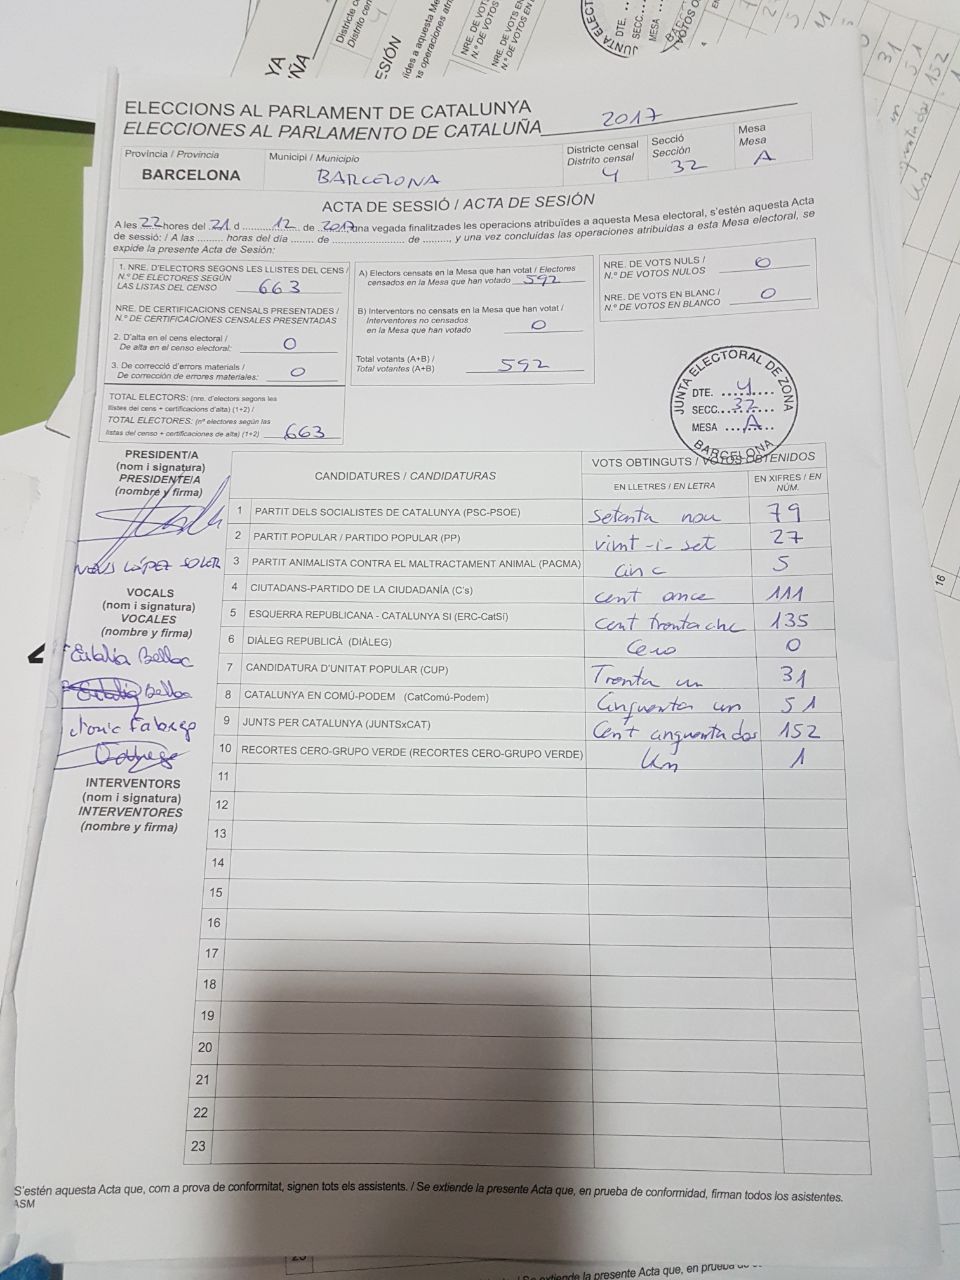 ELECCIONS AL PARLAMENT DE CATALUNYA
ELECCIONES AL PARLAMENTO DE CATALUÑA 2017
Provincia / Provincia
BARCELONA
Municipi / Municipio
BARCELONA
Districte censal
Distrito censal
4
Secció
Sección
32
Mesa
Mesa
A
ACTA DE SESSIÓ / ACTA DE SESIÓN
A les 22 hores del 21 d ......12... de 2017 una vegada finalitzades les operacions atribuïdes a aquesta Mesa electoral, s'estén aquesta Acta
de sessió: / A las ........ horas del día ....... de .......................... de ........, y una vez concluídas las operaciones atribuidas a esta Mesa electoral, se
expide la presente Acta de Sesión:
1. NRE. D'ELECTORS SEGONS LES LLISTES DEL CENS /
N.º DE ELECTORES SEGÚN
LAS LISTAS DEL CENSO 663
NRE. DE CERTIFICACIONS CENSALS PRESENTADES /
N.º DE CERTIFICACIONES CENSALES PRESENTADAS
2. D'alta en el cens electoral /
De alta en el censo electoral: 0
3. De correcció d'errors materials /
De corrección de errores materiales: 0
TOTAL ELECTORS: (nre. d'electors segons les
llistes del cens + certificacions d'alta) (1+2) /
TOTAL ELECTORES: (nº electores según las
listas del censo + certificaciones de alta) (1+2) 663
A) Electors censats en la Mesa que han votat / Electores
censados en la Mesa que han votado 592
B) Interventors no censats en la Mesa que han votat /
Interventores no censados
en la Mesa que han votado 0
Total votants (A+B) /
Total votantes (A+B) 592
NRE. DE VOTS NULS /
N.º DE VOTOS NULOS 0
NRE. DE VOTS EN BLANC /
N.º DE VOTOS EN BLANCO 0
JUNTA ELECTORAL DE ZONA
DTE. 4
SECC. 32
MESA A
BARCELONA
PRESIDENT/A
(nom i signatura)
PRESIDENTE/A
(nombre y firma)
LÓPEZ SOLER
VOCALS
(nom i signatura)
VOCALES
(nombre y firma)
INTERVENTORS
(nom i signatura)
INTERVENTORES
(nombre y firma)
CANDIDATURES / CANDIDATURAS
VOTS OBTINGUTS / VOTOS OBTENIDOS
EN LLETRES / EN LETRA
EN XIFRES / EN NÚM.
1 PARTIT DELS SOCIALISTES DE CATALUNYA (PSC-PSOE) Setanta nou 79
2 PARTIT POPULAR / PARTIDO POPULAR (PP) vint-i-set 27
3 PARTIT ANIMALISTA CONTRA EL MALTRACTAMENT ANIMAL (PACMA) cinc 5
4 CIUTADANS-PARTIDO DE LA CIUDADANÍA (C's) cent once 111
5 ESQUERRA REPUBLICANA - CATALUNYA SI (ERC-CatSí) Cent trenta 135
6 DIÀLEG REPUBLICÀ (DIÀLEG) Cero 0
7 CANDIDATURA D'UNITAT POPULAR (CUP) Trenta un 31
8 CATALUNYA EN COMÚ-PODEM (CatComú-Podem) Cinquanta un 51
9 JUNTS PER CATALUNYA (JUNTSxCAT) Cent cinquanta dos 152
10 RECORTES CERO-GRUPO VERDE (RECORTES CERO-GRUPO VERDE) Un 1
11
12
13
14
15
16
17
18
19
20
21
22
23
S'estén aquesta Acta que, com a prova de conformitat, signen tots els assistents. / Se extiende la presente Acta que, en prueba de conformidad, firman todos los asistentes.
ASM